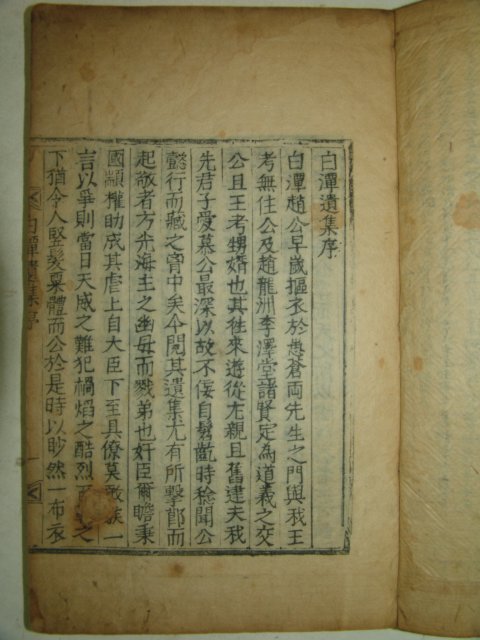 白潭遺集序
白潭趙公早歲摳衣於愚蒼兩先生之門與我王
考無住公及趙龍洲李澤堂諸賢定為道義之交
公且王考甥婿也其往來遊從尤親且舊逮夫我
先君子愛慕公最深以故不佞自髫齔時稔聞公
懿行而藏之胷中矣今閱其遺集尤有所擊節而
起敬者方光海主之幽母而戮弟也奸臣爾瞻秉
國顓權助成其虐上自大臣下至具僚莫敢發一
言以爭則當日天威之難犯禍焰之酷烈之
下猶令人竪髮粟體而公於是時以眇然一布衣
白潭遺集序 一